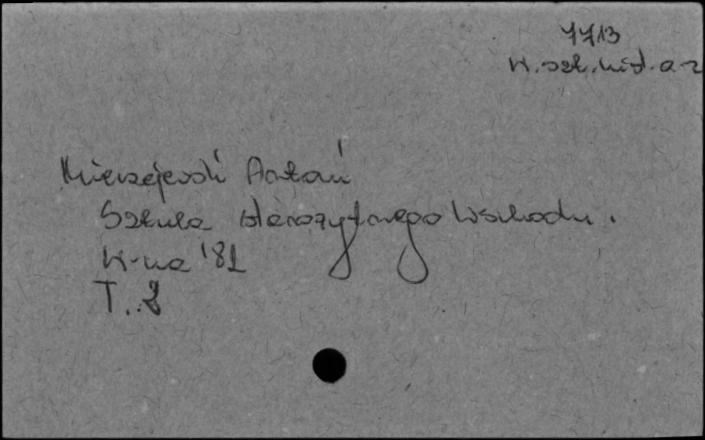 7713
W. szt. hist. a-2
Mierzejewski Antoni
Sztuka starożytnego Wschodu.
W-wa '81
T. 2